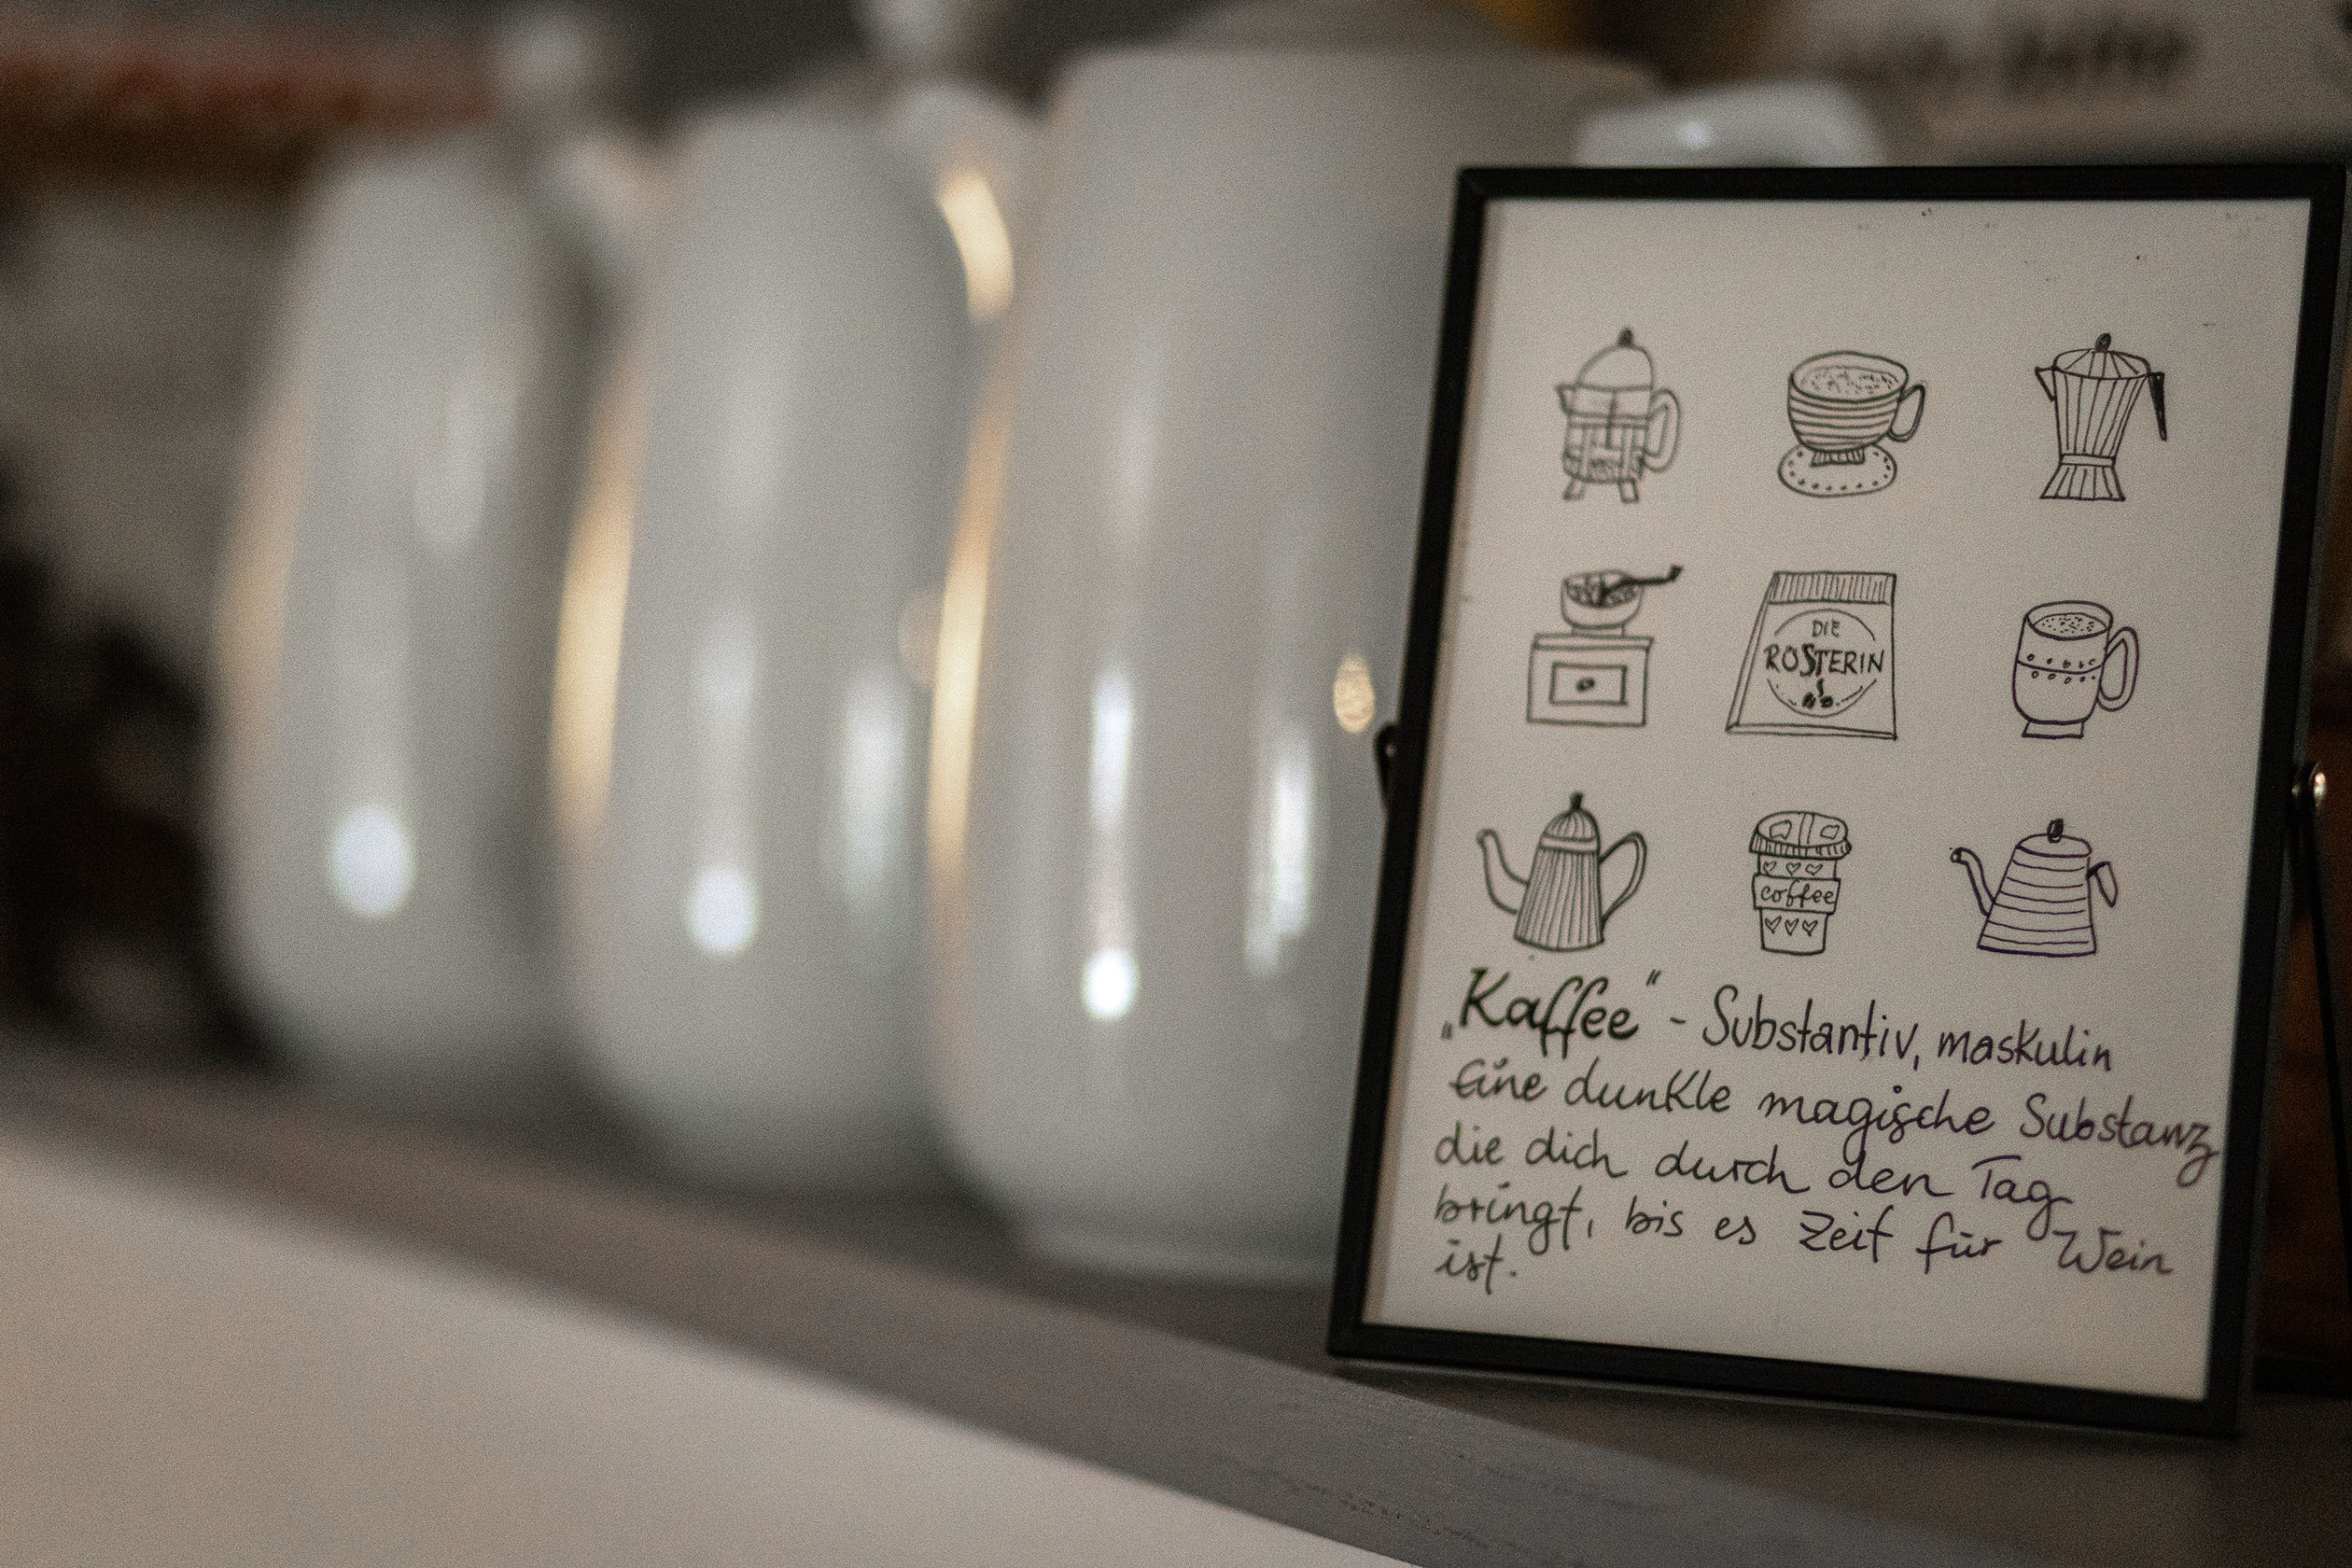 DIE
RÖSTERIN
coffee
„Kaffee“ - Substantiv, maskulin
Eine dunkle magische Substanz
die dich durch den Tag
bringt, bis es Zeit für Wein
ist.